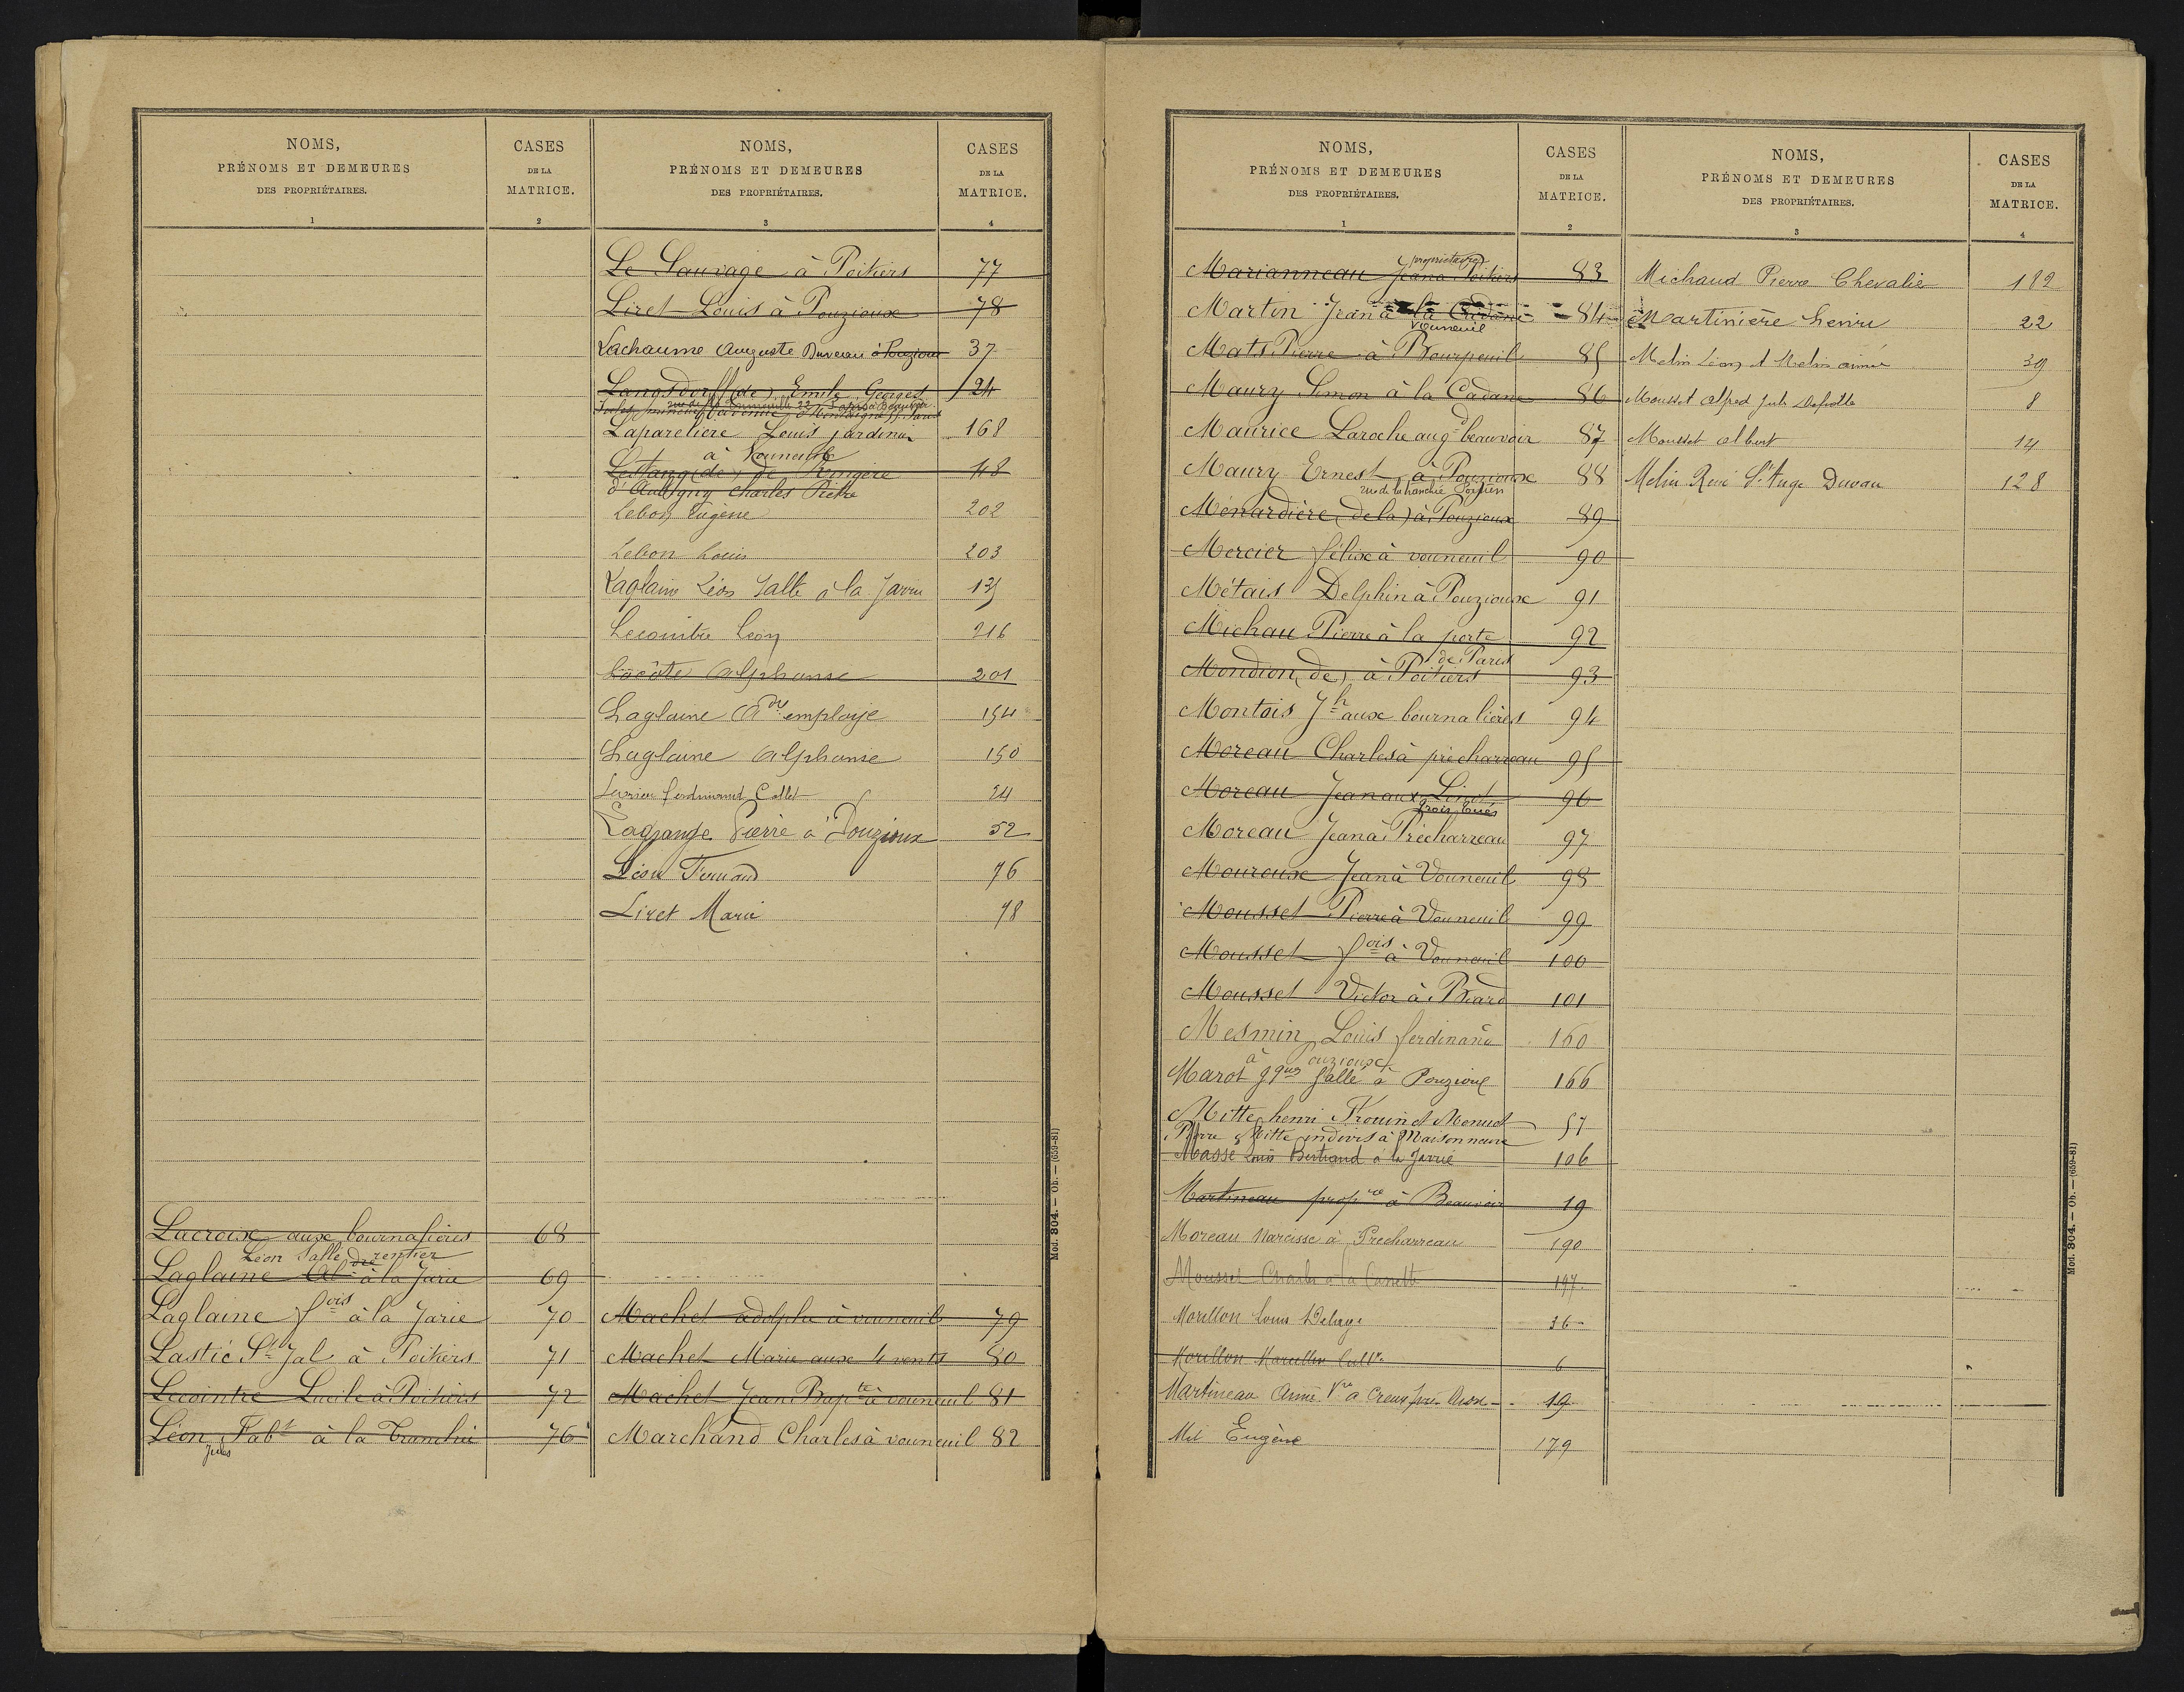 NOMS,
PRÉNOMS ET DEMEURES
DES PROPRIÉTAIRES.
1
CASES
DE LA
MATRICE.
2
Lacroix aux bournalières 68
Léon Salle rentier
Laglaine Al dre à la Jarie 69
Laglaine fois à la Jarie 70
Lastic St Jal à Poitiers 71
Lecointre Lucile à Poitiers 72
Léon Fabt à la Tranchée 76
Jules
NOMS,
PRÉNOMS ET DEMEURES
DES PROPRIÉTAIRES.
3
CASES
DE LA
MATRICE.
4
Le Sauvage à Poitiers 77
Liret Louis à Pouzioux 78
Lachaume Auguste Duveau à Pouzioux 37
Langsdorff (de) Emile Georges 124
Laparelière Louis jardinier 168
à Vouneuil
Lestang (de) de Ringère 48
d'Aubigny Charles Pierre
Lebon Eugène 202
Lebon Louis 203
Laglaine Léon Salle à la Jarrie 135
Lecointre Léon 216
Lacôte Alphonse 201
Laglaine Adre employé 154
Laglaine Alphonse 150
ferdinand Collet 24
Lagrange Pierre à Pouzioux 52
Léon Fernand 76
Liret Marie 78
Machet adolphe à vouneuil 79
Machet Marie aux 4 vents 80
Machet Jean Bapte à vouneuil 81
Marchand Charles à vouneuil 82
Mod. 804. — Ob. — (659-81)
NOMS,
PRÉNOMS ET DEMEURES
DES PROPRIÉTAIRES.
1
CASES
DE LA
MATRICE.
2
propriétaire
Marianneau Jean à Poitiers 83
Martin Jean à la Cadane 84
Vouneuil
Mats Pierre à Bourpeuil 85
Maury Simon à la Cadane 86
Maurice Laroche augd beauvoir 87
Maury Ernest à Pouzioux 88
rue de la tranchée Poitiers
Ménardière (de la) à Pouzioux 89
Mercier félix à vouneuil 90
Métais Delphin à Pouzioux 91
Michau Pierre à la porte 92
de Paris
Mondion (de) à Poitiers 93
Montois Jh aux bournalières 94
Moreau Charles à précharreau 95
Moreau Jean aux Linot 96
trois Cués
Moreau Jean à Précharreau 97
Moureux Jean à Vouneuil 98
Mousset Pierre à Vouneuil 99
Mousset fois à Vouneuil 100
Mousset Victor à Biard 101
Mesmin Louis ferdinand 160
à Pouzioux
Marot Jques Salle à Pouzioux 166
Mitte henri Frouin et Menuet 57
Pierre Mitte indivis à Maisonneuve
Masse Louis Bertrand à la Jarrie 106
Martineau propre à Beauvoir 19
Moreau Narcisse à Precharreau 190
Mousset Charles à la Canette 197
Morillon Louis Delage 36
Morillon Marcellin Cultr 6
Martineau Anne Vve à Creux 19
Mel Eugène 179
NOMS,
PRÉNOMS ET DEMEURES
DES PROPRIÉTAIRES.
3
CASES
DE LA
MATRICE.
4
Michaud Pierre Chevalier 182
Martinière henri 22
Melin Léon et Melin aimé 39
Mousset alfred Jules 8
Mousset albert 14
Melin René St Ange Duvau 128
Mod. 804. — Ob. — (659-81)